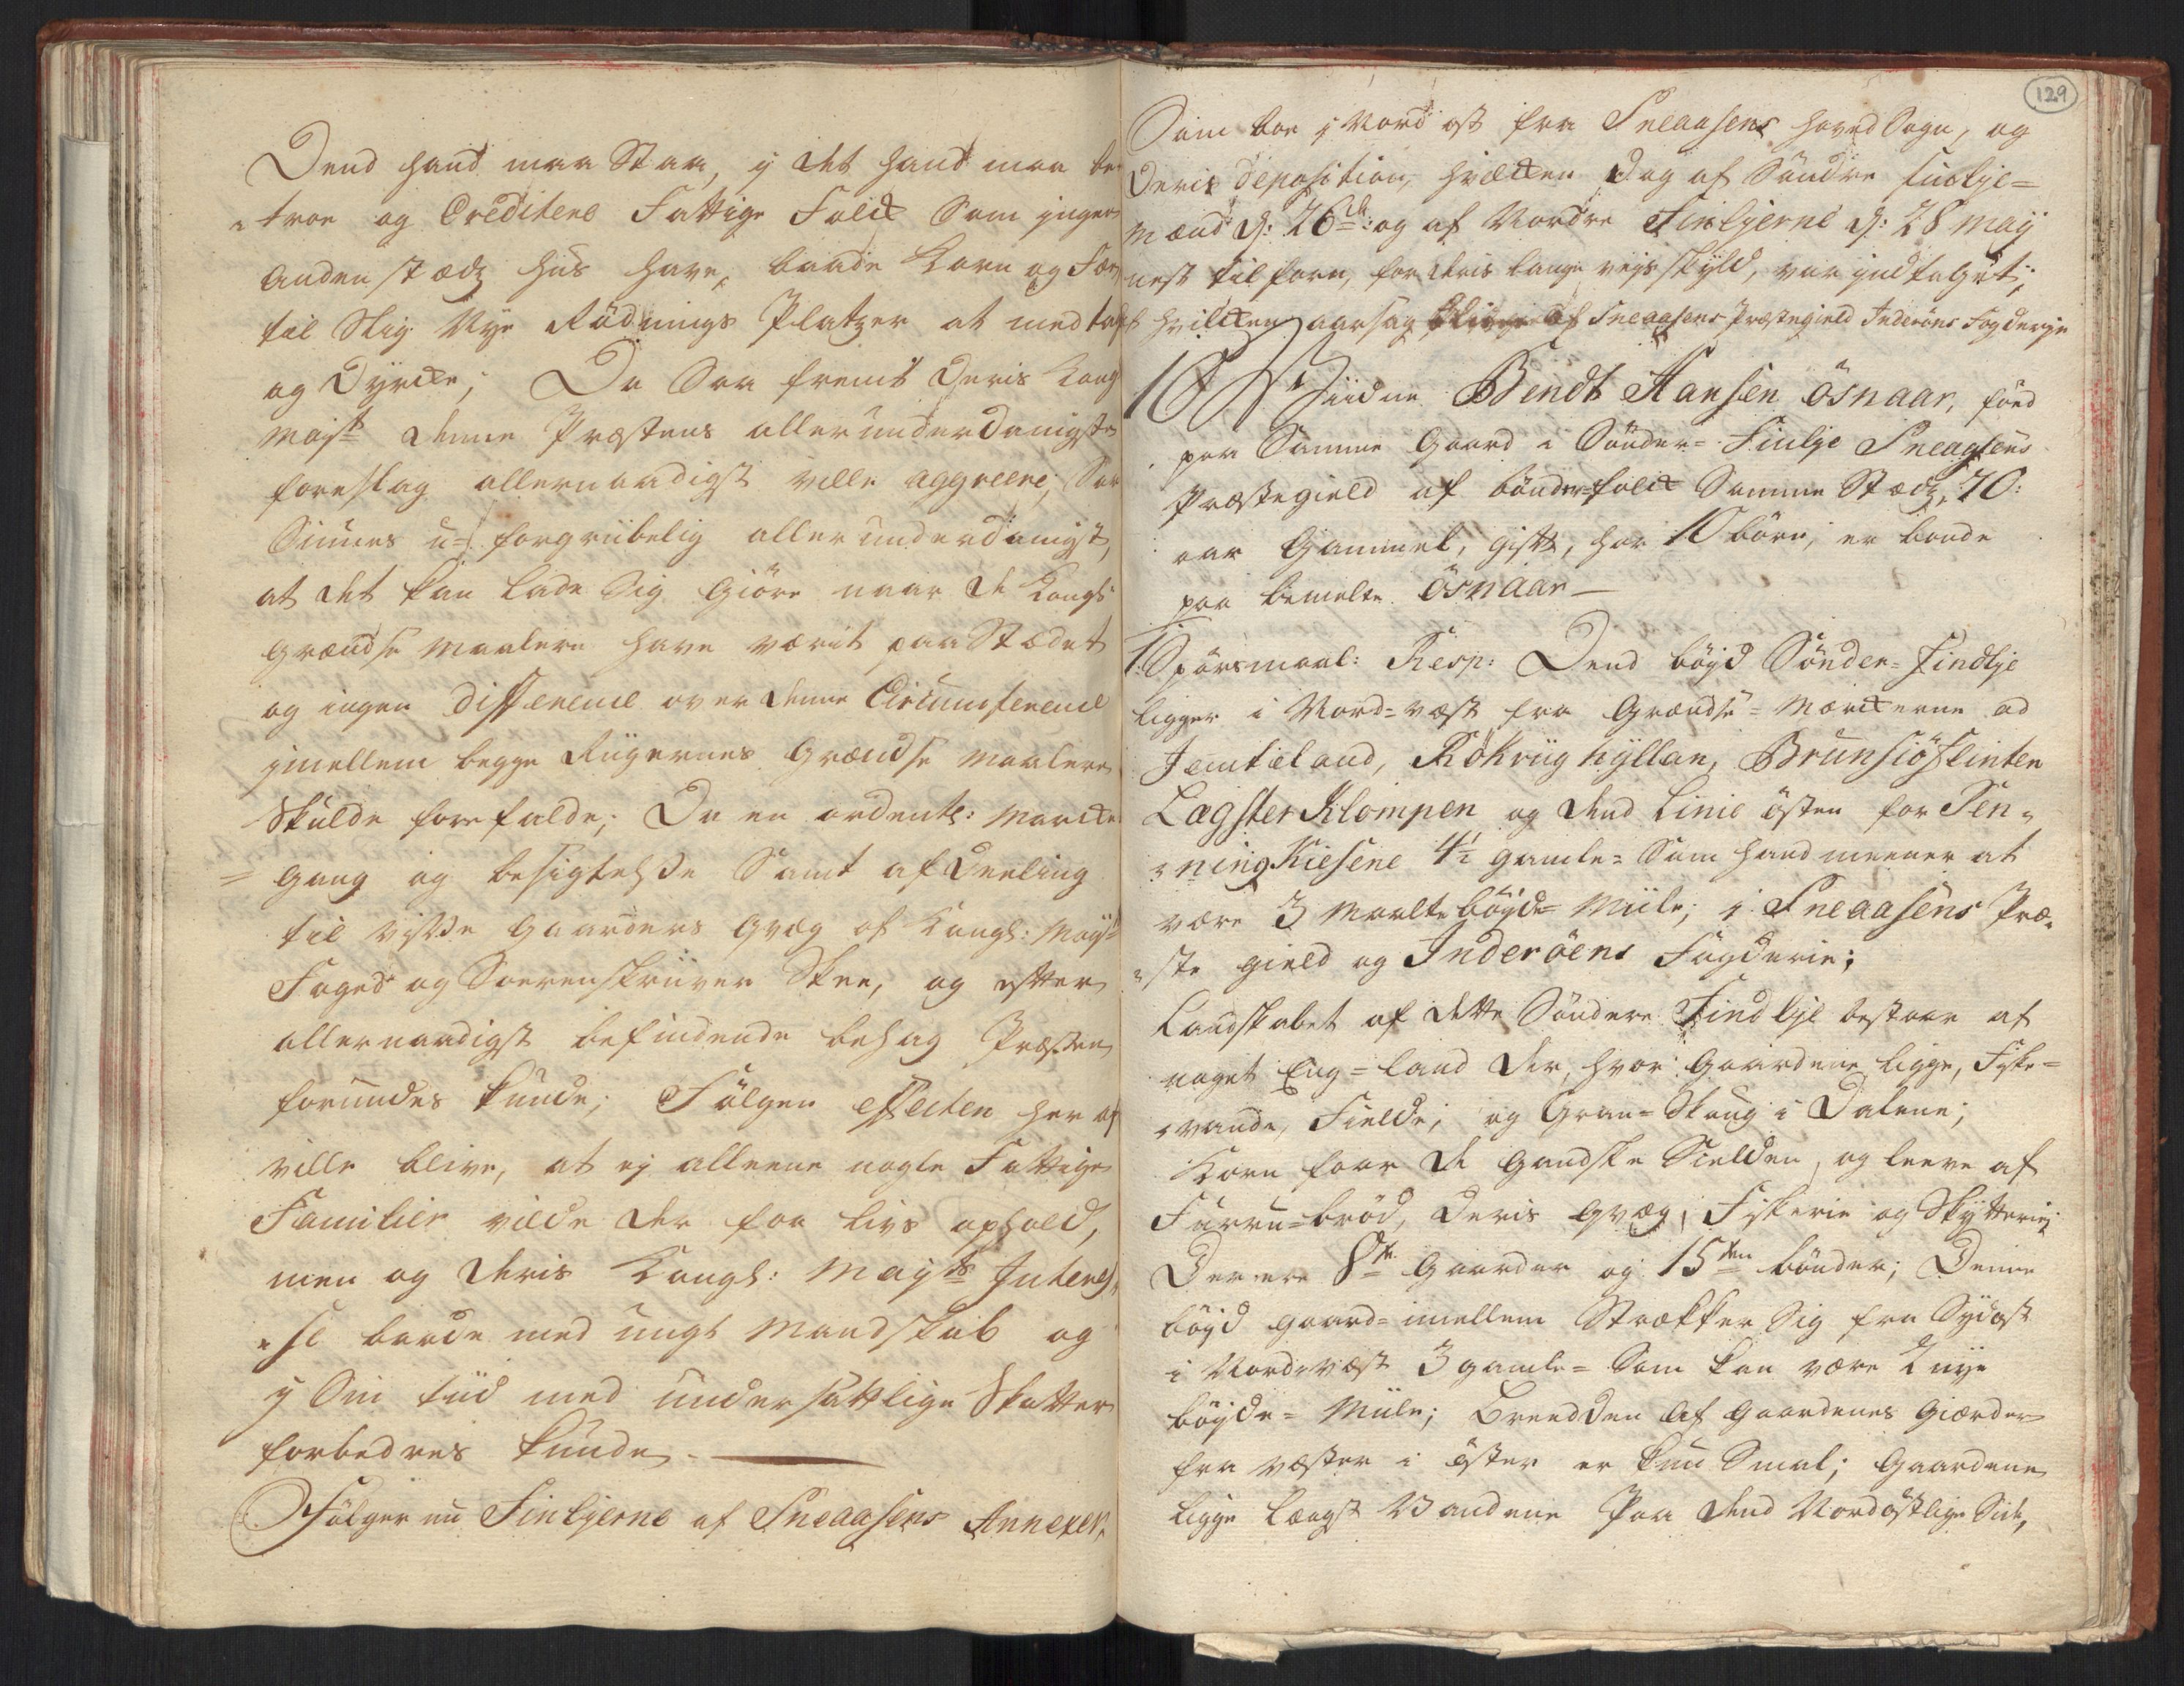 Dend hand maa Staa, y det hand maa be-
troe og Creditere Fattige Folck Som ingen
anden stædz huus have, baade Korn og Fæe
til Slig Nye Rödnings Platzer at medtage
og Dyrcke; Da Saa fremt Deris Kong
Mayst denne Præstens allerunderdanigste
forslag allernaadigst ville aggreere; Saa
Siunes u-forgribelig allerunderdanigst,
at det kan lade Sig giöre naar de Kongl:
Grændse Maalere have værit paa Stædet
og ingen difference over denne Circumference
imellem begge Riigernes Grændse Maalere
Skulde forefalde; Da en ordentl: Marcke
gang og besigtelse Samt afdeeling
til visse Gaarders qvæg af Kongl: Mayst
Foged og Sorenskriver Skee, og efter
allernaadigst befindende behag Præsten
forundes kunde; Fölgen effecten her af
ville blive, at ej alleene nogle Fattige
Familier vilde der faa livs ophold,
men og deris Kongl: Mayts Intere-
sse baade med ungt Mandskab og
y Sin tiid med undersaatlige Skatter
forbedres kunde.
Fölger nu Finlierne af Sneaasens Annexer,
129
Som boe y Nord ost fra Sneaasens hoved Sogn, og
Deris deposition, hvilcken Dag af Söndre Finlje-
Mænd d: 26de: og af Nordre Finlierne d: 28 Maij
nest tilforn, for deris lange vejs skyld, var indtaget;
hvilcken aarsag af Sneaasens Præstegield Inderöens Fogderje
10 Viidne Bendt Hansen Ösnaar, föed
paa Samme Gaard i Sönder-Finlje Sneaasens
Præstegield af bönderfolck Samme Stædz, 70:
aar Gammel, gifft, har 10 börn, er bonde
paa bemelte Ösnaar —
1. Spörsmaal: Resp: Dend böyd Sönder-Findlje
ligger i Nord-væst fra Grændse-Mærckerne ad
Jemteland, Rökriig hyllan, Brunsiöflinten
Lagster Klompen og dend Linie östen for Ten-
ning Kiesene 4½ gamle-Som hand meener at
være 3 Maalte böyde-Miile; i Sneaasens Præ-
ste gield og Inderöens Fogderie;
Landskabet af dette Söndere Findlje bestaar af
noget Eng-land der, hvor Gaardene ligge, Fiske-
vande, Fielde; og Gran-Skoug i Dalene;
Korn faar de gandske Sielden, og leeve af
Furru-bröd, deris qvæg, Fiskerie og Skytterie;
Der ere 8te Gaarder og 15ten bönder; Denne
böyd gaard-imellem Strækker Sig fra Sydost
i Nord-væst 3 gamle-Som kan være 2 nye
böyde-Miile; Breedden af gaardenes Giærder
fra væster i öster er kun Smal; Gaardene
ligge langst Vandene paa dend Nordöstlige Side,